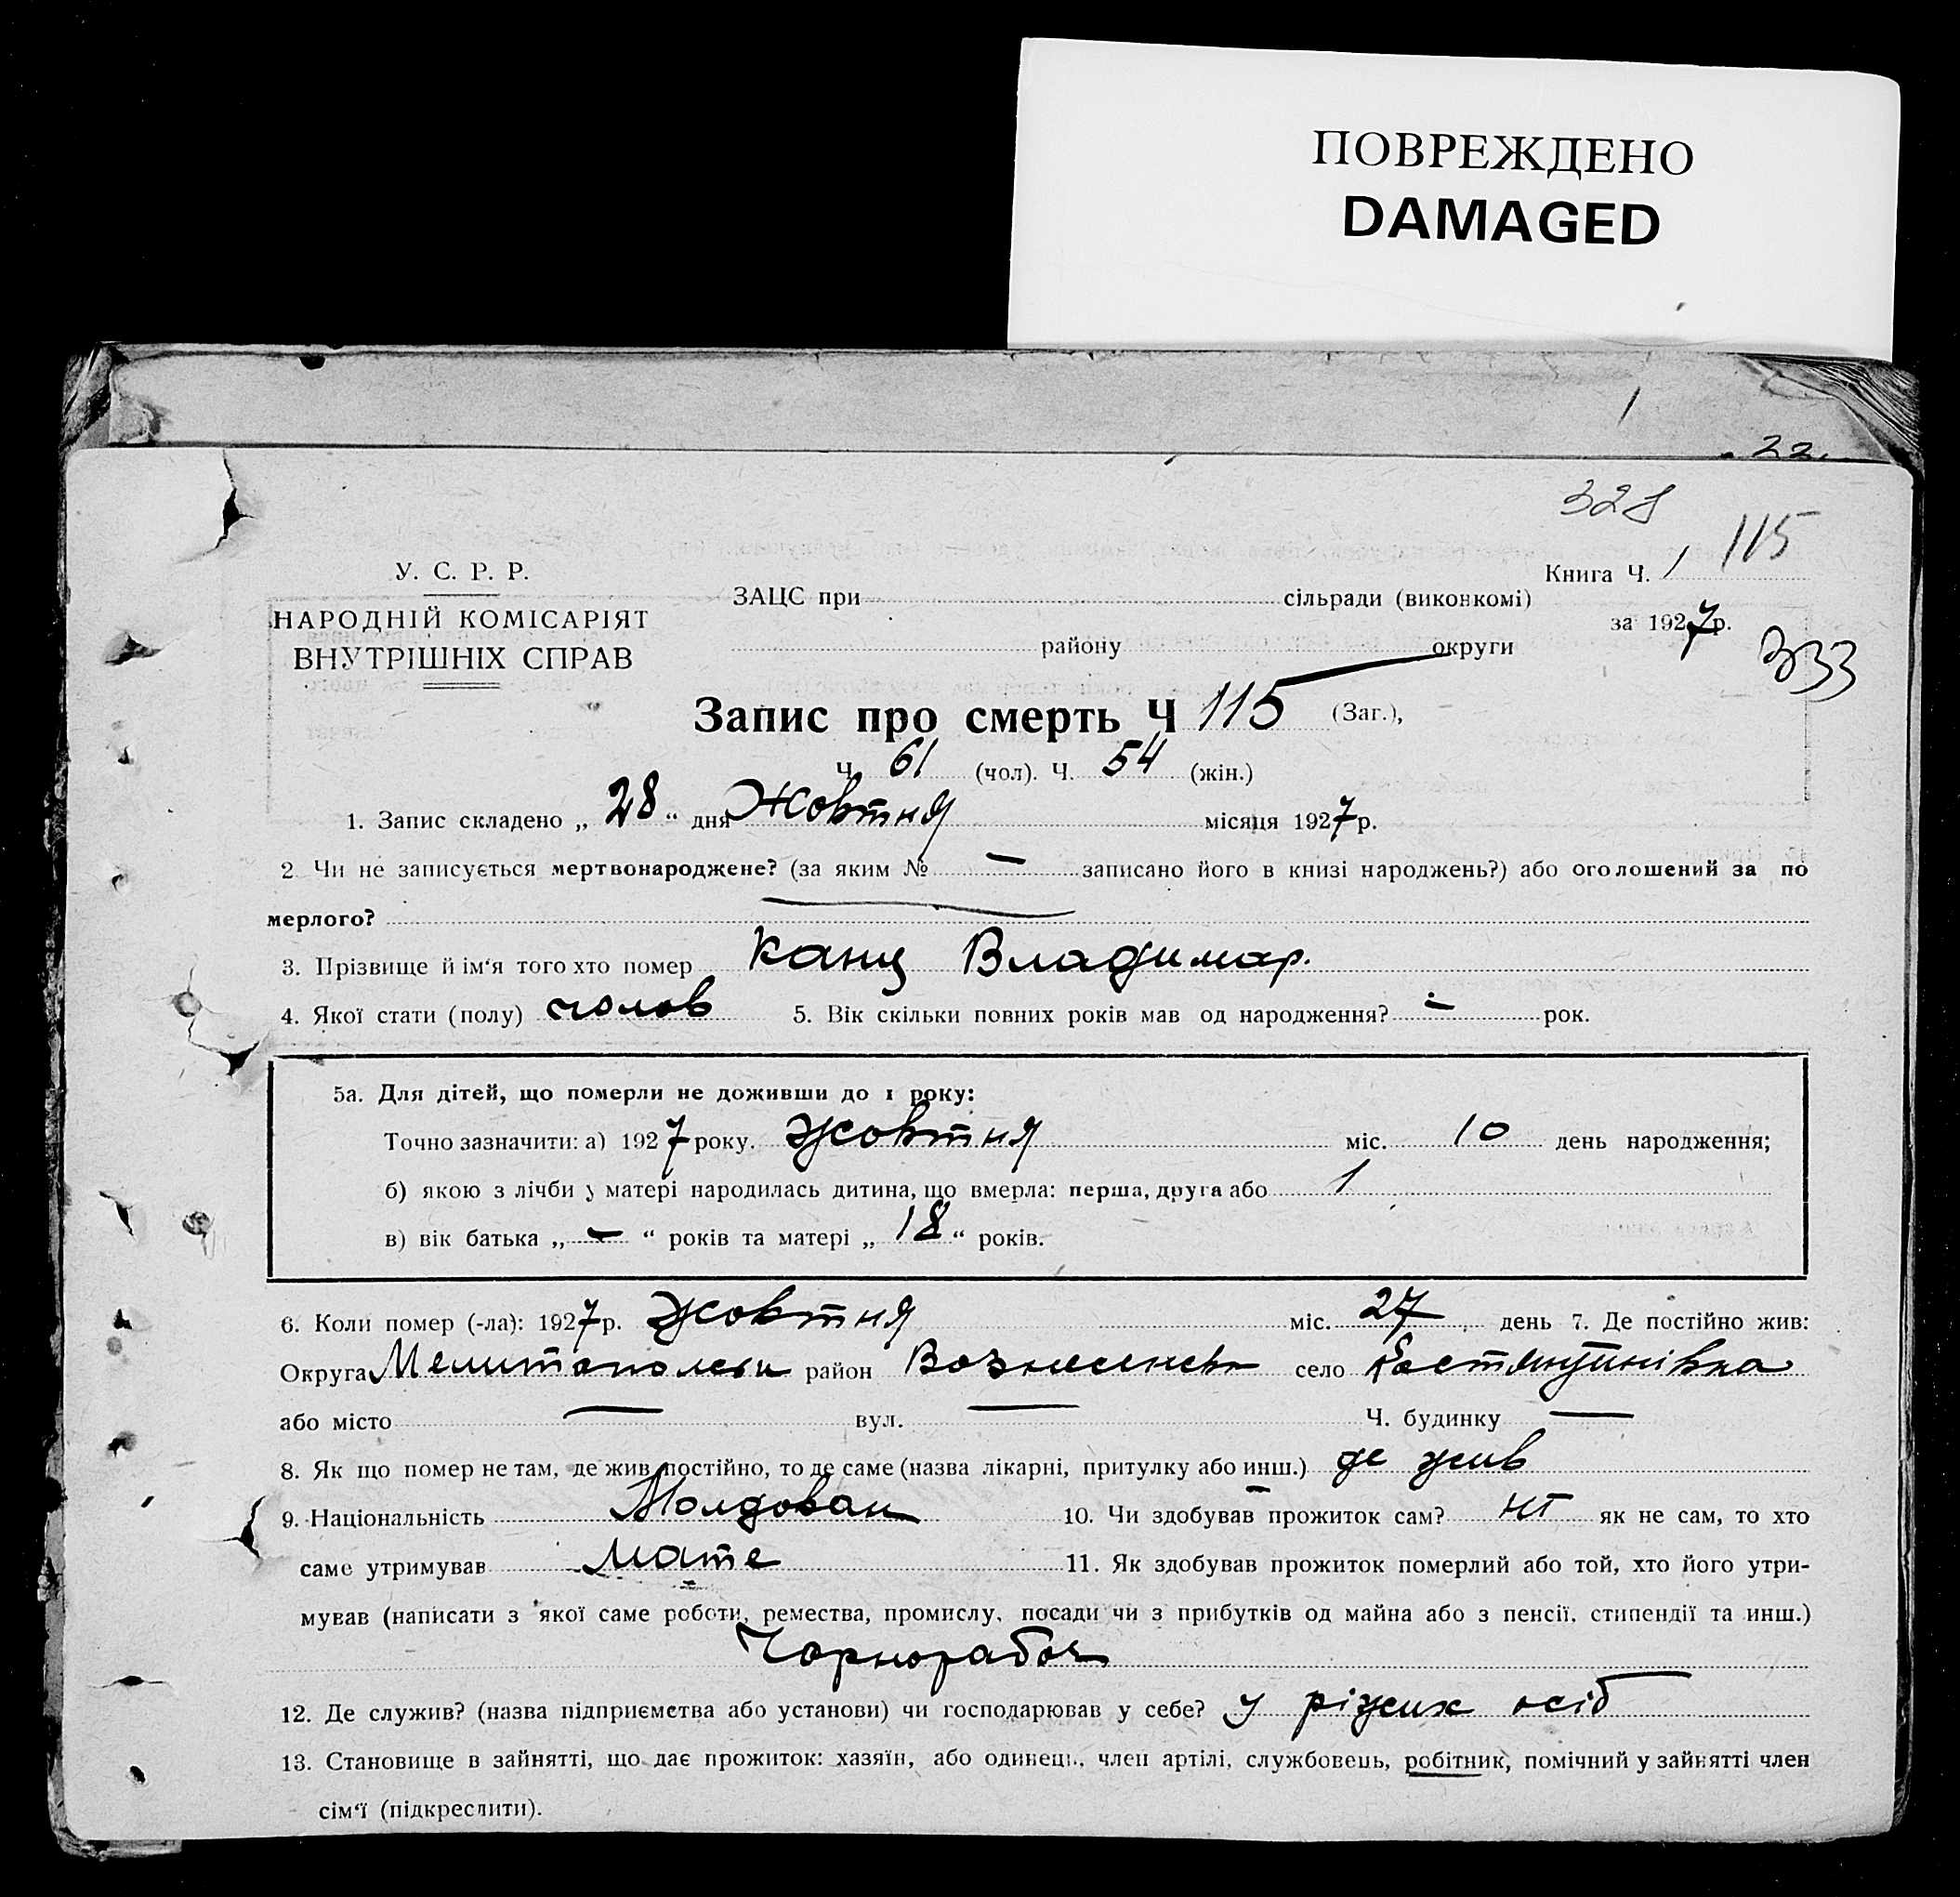 ПОВРЕЖДЕНО
DAMAGED
1
22.
328
115
У. С. Р. Р.
НАРОДНІЙ КОМІСАРІЯТ
ВНУТРІШНІХ СПРАВ
Книга Ч. 1
ЗАЦС при сільради (виконкомі)
за 1927р.
району округи
333
Запис про смерть Ч 115 (Заг.),
Ч. 61 (чол). Ч. 54 (жін.)
1. Запис складено „ 28 “ дня Жовтня місяця 1927р.
2 Чи не записується мертвонароджене? (за яким № — записано його в книзі народжень?) або оголошений за по
мерлого?
3. Прізвище й ім‘я того хто помер Канц Владимир.
4. Якої стати (полу) чолов 5. Вік скільки повних років мав од народження? — рок.
5а. Для дітей, що померли не доживши до 1 року:
Точно зазначити: а) 1927 року. Жовтня міс. 10 день народження;
б) якою з лічби у матері народилась дитина, що вмерла: перша, друга або 1
в) вік батька „ — “ років та матері „ 18 “ років.
6. Коли помер (-ла): 1927р. Жовтня міс. 27 день 7. Де постійно жив:
Округа Мелитопольськ район Вознесенськ село Костянтинівка
або місто — вул. — Ч. будинку —
8. Як що помер не там, де жив постійно, то де саме (назва лікарні, притулку або инш.) де жив
9. Національність Молдован 10. Чи здобував прожиток сам? ні як не сам, то хто
саме утримував Мате 11. Як здобував прожиток померлий або той, хто його утри-
мував (написати з якої саме роботи, ремества, промислу, посади чи з прибутків од майна або з пенсії, стипендії та инш.)
Чорнорабоч
12. Де служив? (назва підприємства або установи) чи господарював у себе? у ріжних осіб
13. Становище в зайнятті, що дає прожиток: хазяїн, або одинець, член артілі, службовець, робітник, помічний у зайнятті член
сім‘ї (підкреслити).